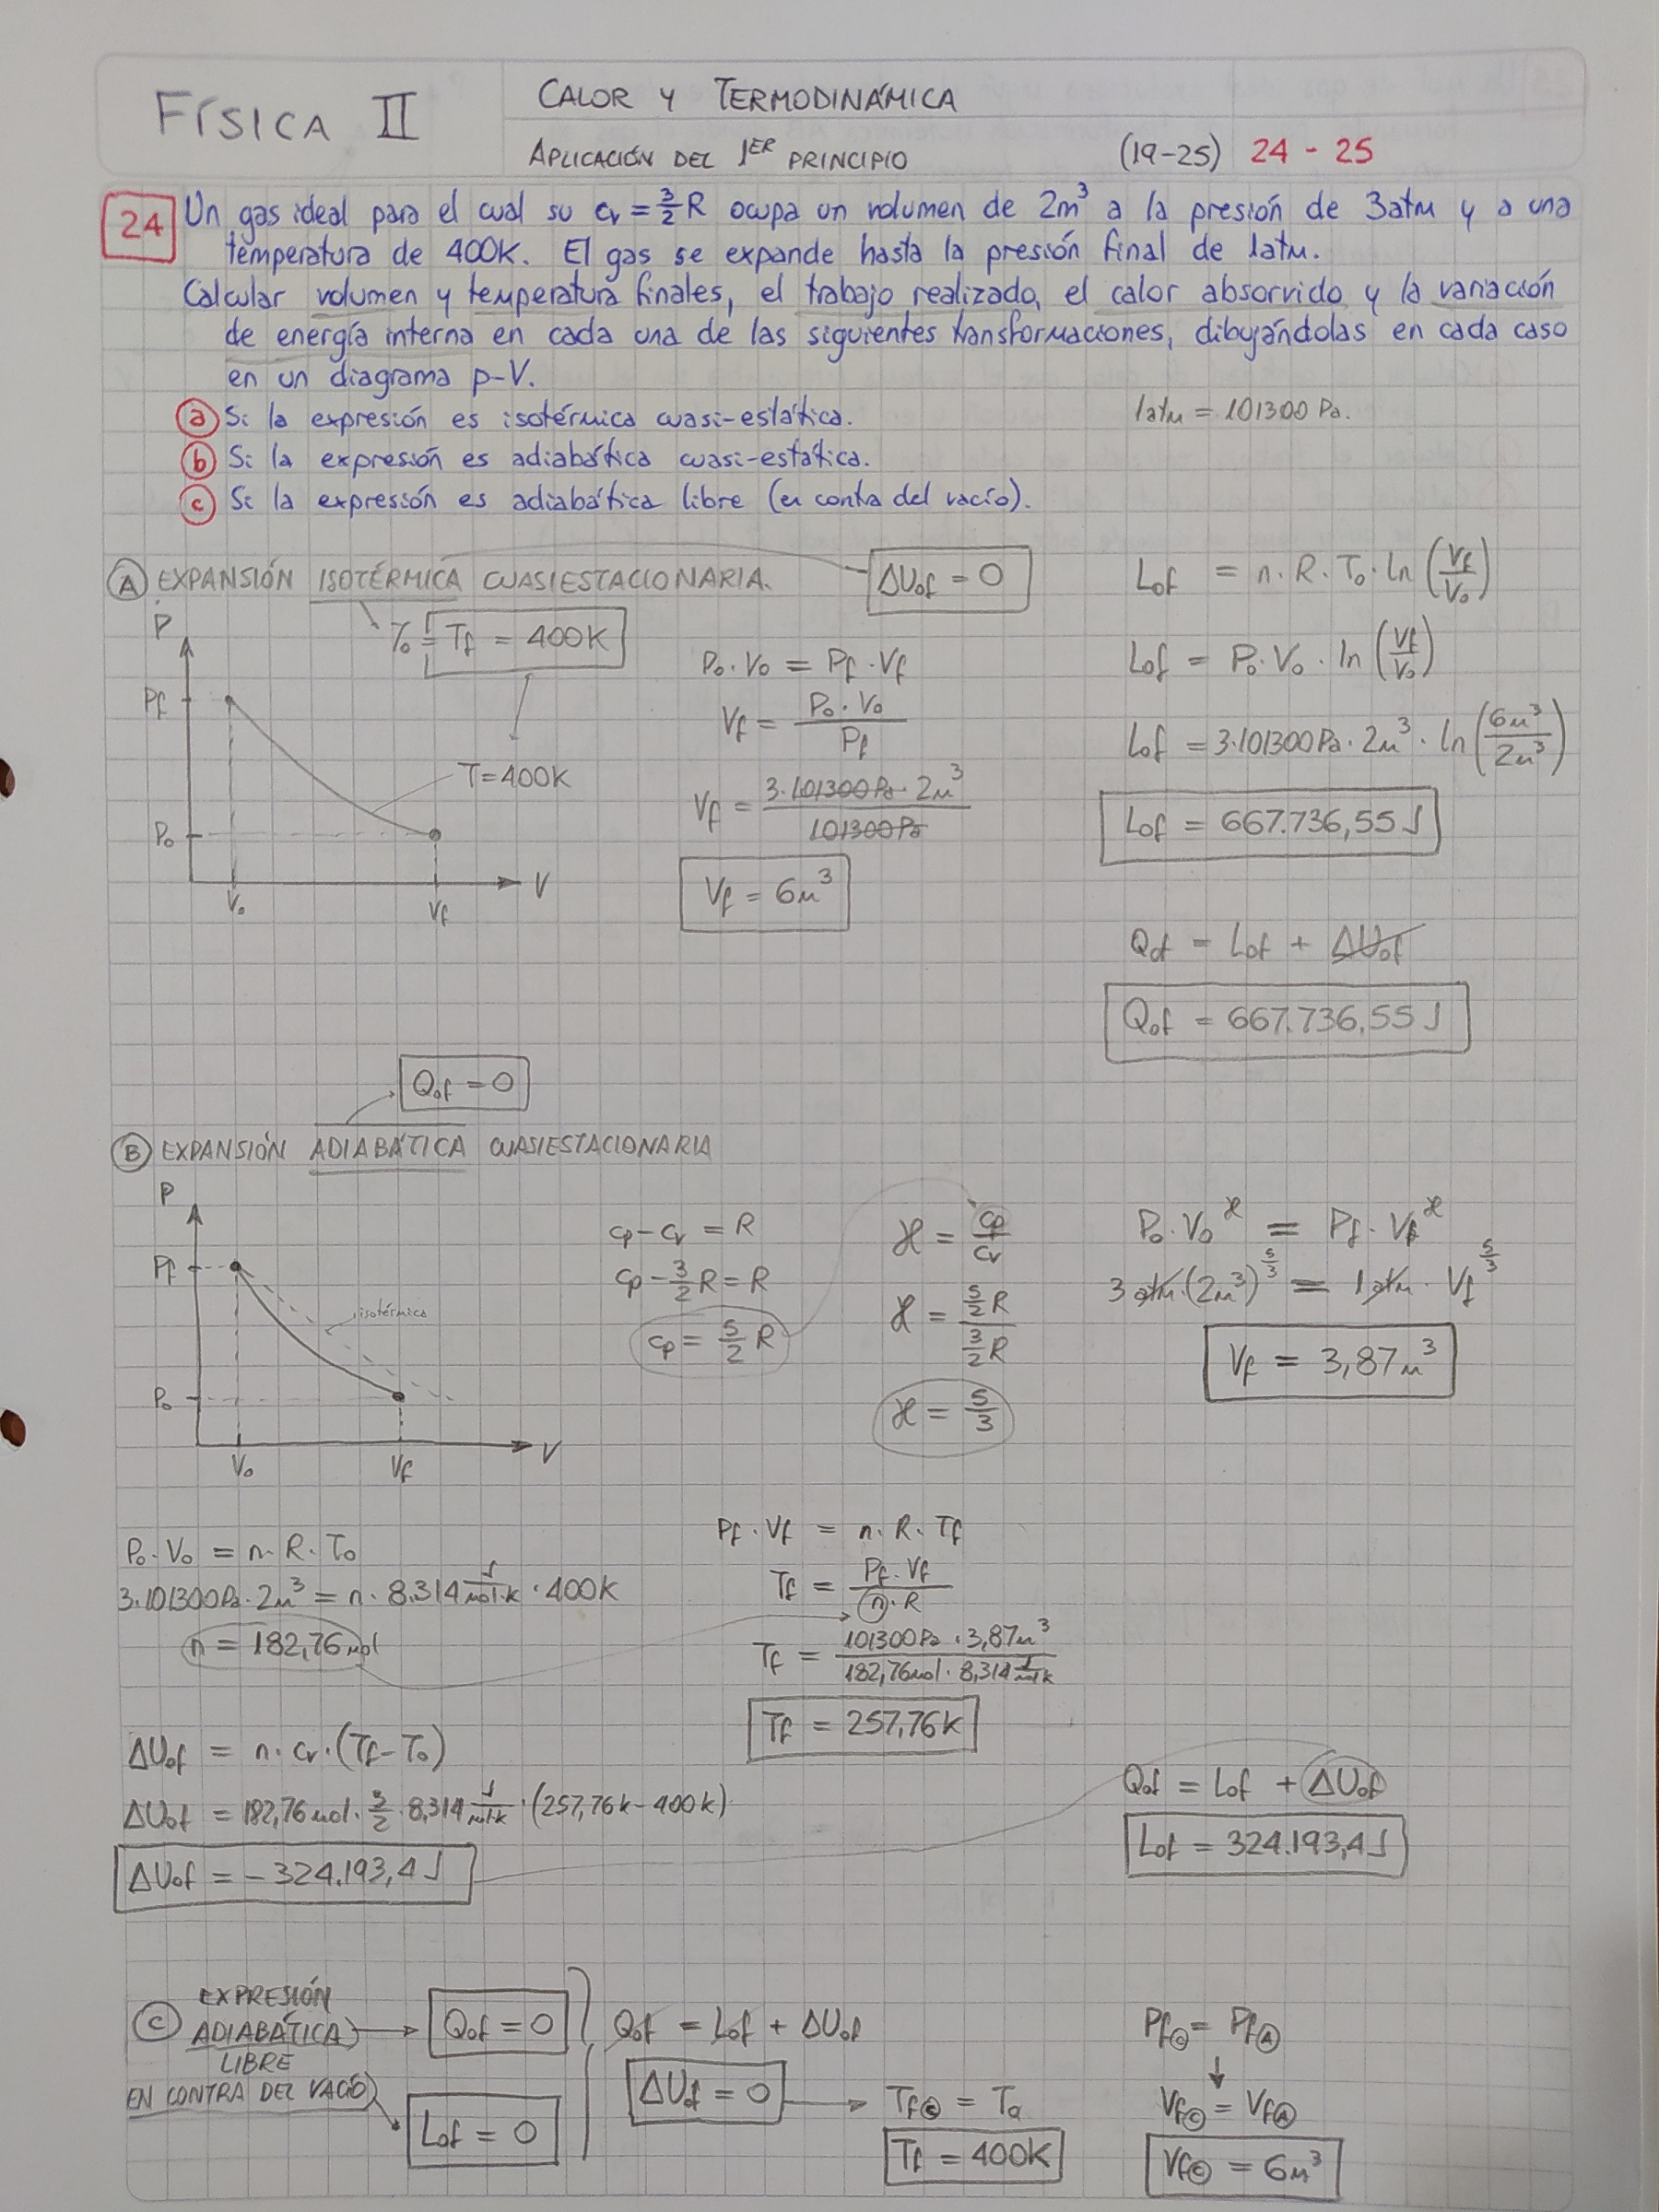 FÍSICA II
CALOR Y TERMODINÁMICA
APLICACIÓN DEL 1ER PRINCIPIO (19-25) 24 - 25
24 Un gas ideal para el cual su cv = 3/2 R ocupa un volumen de 2m³ a la presión de 3atm y a una
temperatura de 400K. El gas se expande hasta la presión final de 1atm.
Calcular volumen y temperatura finales, el trabajo realizado, el calor absorvido y la variación
de energía interna en cada una de las siguientes transformaciones, dibujándolas en cada caso
en un diagrama p-V.
a Si la expresión es isotérmica cuasi-estática.
1atm = 101300 Pa.
b Si la expresión es adiabática cuasi-estática.
c Si la expresión es adiabática libre (en contra del vacío).
A EXPANSIÓN ISOTÉRMICA CUASIESTACIONARIA.
ΔUof = 0
To = Tf = 400K
P
Pf
Po
Vo
Vf
V
T=400K
Po · Vo = Pf · Vf
Vf = Po · Vo / Pf
Vf = 3·101300Pa · 2m³ / 101300Pa
Vf = 6m³
Lof = n · R · To · ln (Vf/Vo)
Lof = Po · Vo · ln (Vf/Vo)
Lof = 3·101300Pa · 2m³ · ln (6m³/2m³)
Lof = 667.736,55 J
Qof = Lof + ΔUof
Qof = 667.736,55 J
Qof = 0
B EXPANSIÓN ADIABÁTICA CUASIESTACIONARIA
P
Pf
Po
Vo
Vf
V
isotérmica
cp - cv = R
cp - 3/2 R = R
cp = 5/2 R
γ = cp/cv
γ = 5/2 R / 3/2 R
γ = 5/3
Po · Vo^γ = Pf · Vf^γ
3 atm · (2m³)^5/3 = 1 atm · Vf^5/3
Vf = 3,87m³
Po · Vo = n · R · To
3·101300Pa · 2m³ = n · 8,314 J/mol·K · 400K
n = 182,76mol
Pf · Vf = n · R · Tf
Tf = Pf · Vf / n · R
Tf = 101300Pa · 3,87m³ / 182,76mol · 8,314 J/mol·K
Tf = 257,76K
ΔUof = n · cv · (Tf - To)
ΔUof = 182,76mol · 3/2 · 8,314 J/mol·K · (257,76K - 400K)
ΔUof = - 324.193,4 J
Qof = Lof + ΔUof
Lof = 324.193,4 J
C EXPRESIÓN
ADIABÁTICA
LIBRE
EN CONTRA DEL VACÍO
Qof = 0
Lof = 0
Qof = Lof + ΔUof
ΔUof = 0
Tf C = To
Tf = 400K
Pf C = Pf A
Vf C = Vf A
Vf C = 6m³